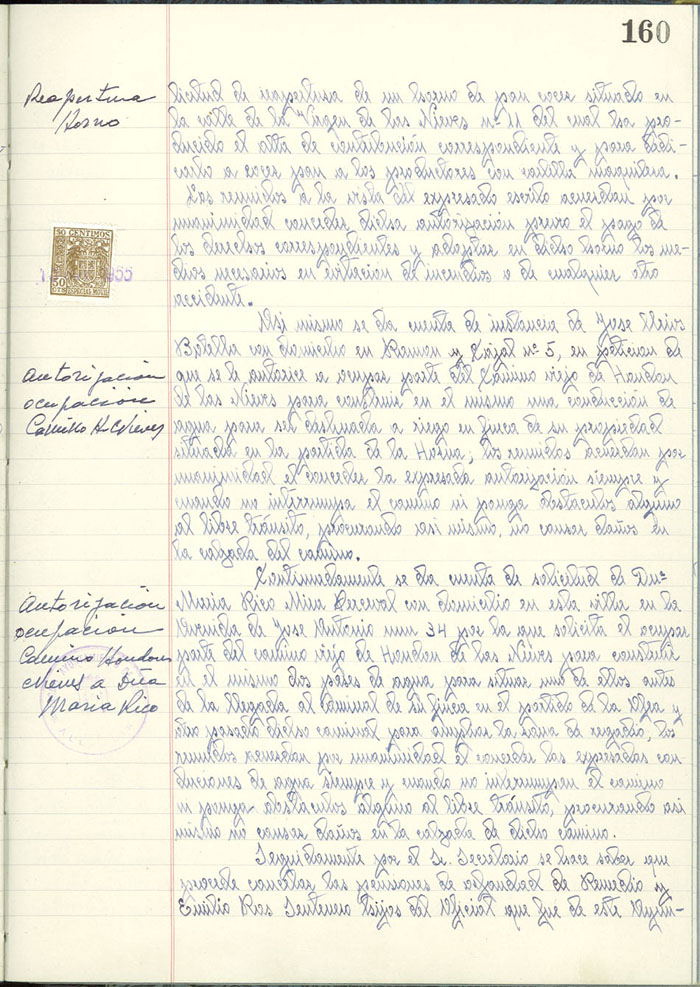 160
Reapertura
Horno
licitud de reapertura de un horno de pan cocer situado en
la calle de la Virgen de las Nieves nº 11 del cual ha pro-
ducido el alta de contribución correspondiente y para dedi-
carlo a cocer pan a los productores con cartilla maquilera.
Los reunidos a la vista del expresado escrito acuerdan por
unanimidad conceder dicha autorización previo el pago de
los derechos correspondientes y adoptar en dicho horno los me-
dios necesarios en evitación de incendios o de cualquier otro
accidente.
50 CENTIMOS
50
CTS ESPECIAL MOVIL
1955
Autorización
ocupación
Camino H. Nieves
Asi mismo se da cuenta de instancia de Jose
Botella con domicilio en Ramon y Cajal nº 5, en peticion de
que se le autorice a ocupar parte del Camino viejo de Hondon
de las Nieves para construir en el mismo una conducción de
agua para ser destinada a riego en finca de su propiedad
situada en la partida de la; los reunidos acuerdan por
unanimidad el conceder la expresada autorización siempre y
cuando no interrumpa el camino ni ponga obstaculos alguno
al libre tránsito, procurando asi mismo, no causar daños en
la calzada del camino.
Autorización
ocupación
Camino Hondon
Nieves a Dña
Maria Rico
Continuadamente se da cuenta de solicitud de Dnª
Maria Rico Mira Perceval con domicilio en esta villa en la
Avenida de Jose Antonio num 34 por la que solicita el ocupar
parte del camino viejo de Hondon de las Nieves para construir
en el mismo dos pases de agua para situar uno de ellos antes
de la llegada al caminal de su finca en el partido de la y
otro pasado dicho caminal para ampliar la zona de regadio, los
reunidos acuerdan por unanimidad el conceder las expresadas con-
duciones de agua siempre y cuando no interrumpen el camino
ni ponga obstaculos alguno al libre tránsito, procurando asi
mismo no causar daños en la calzada de dicho camino.
Seguidamente por el Sr. Secretario se hace saber que
procede cancelar las pensiones de orfandad de Remedio y
Emilio Rios Sentenero hijos del Oficial que fue de este Ayun-